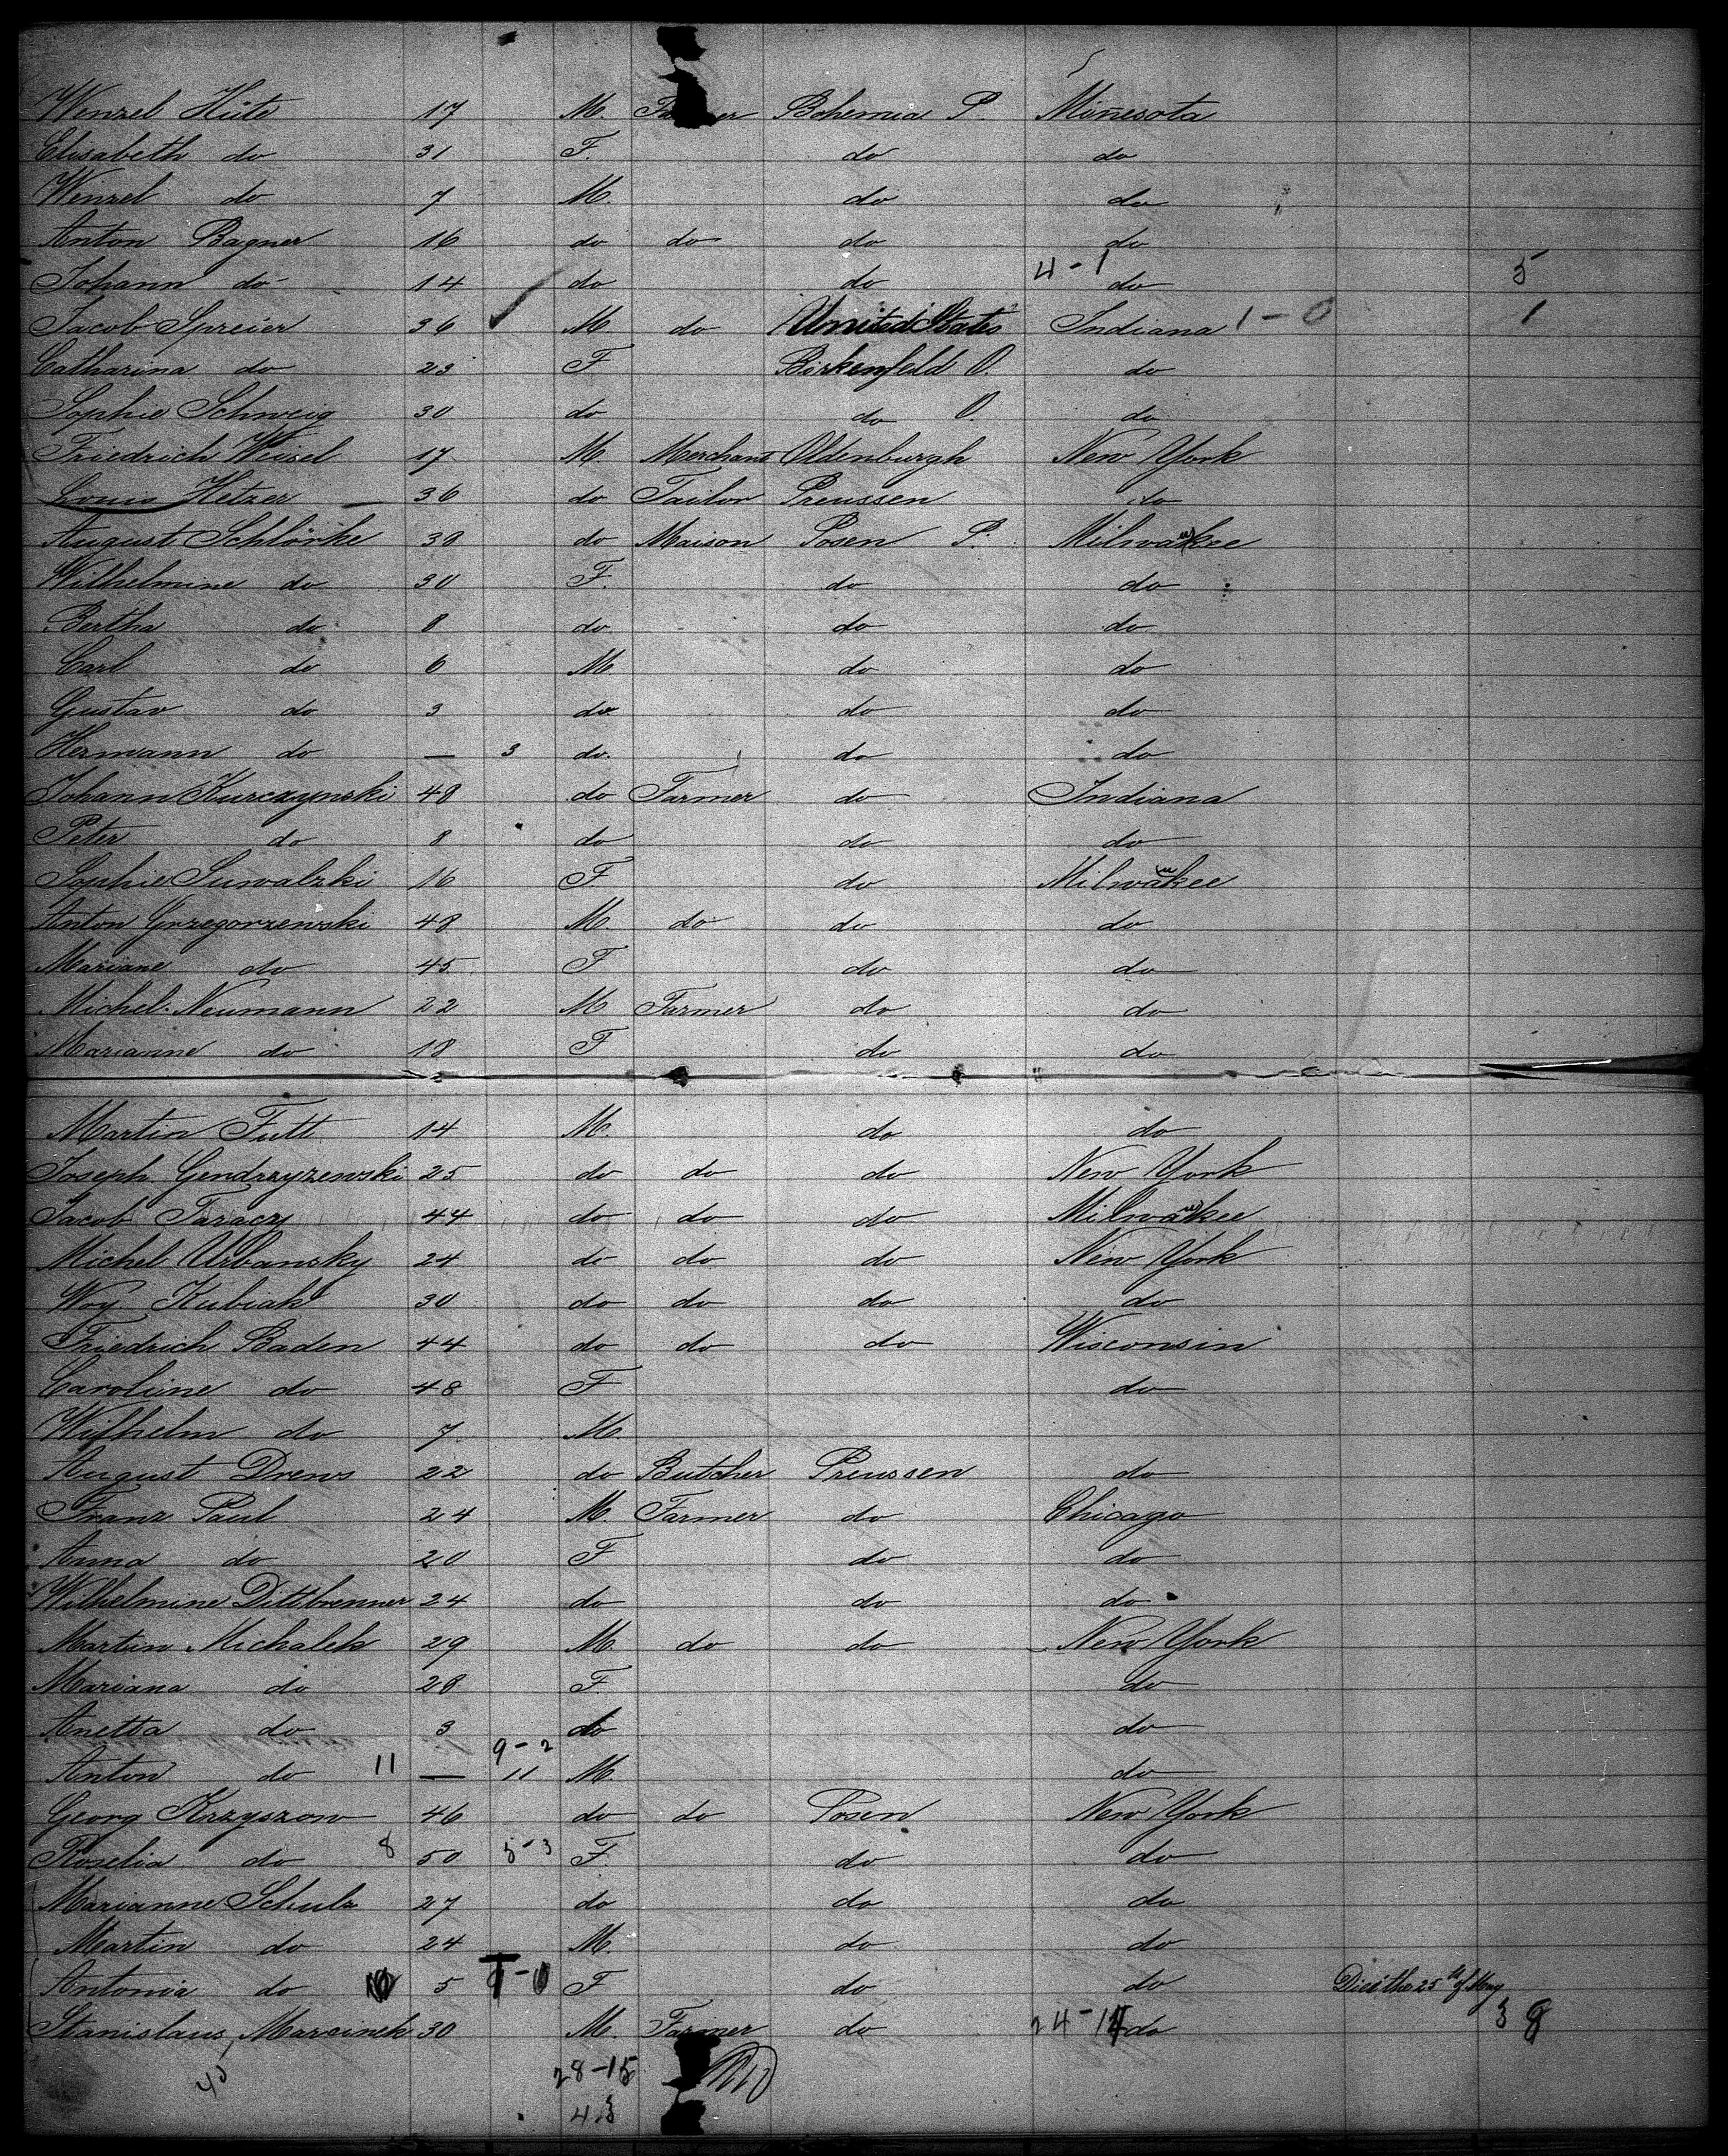 Wenzel Hüte 17 M. Bohemia P. Minnesota
Elisabeth do 31 F. do do
Wenzel do 7 M. do do
Anton Bagner 16 do do do do
4-1 5
Johann do 14 do do do
Jacob Spreier 36 M do United States Indiana 1-0 1
Catharina do 23 F Birkenfeld O. do
Sophie Schweig 30 do do O. do
Friedrich Weisel 17 M Merchant Oldenburgh New York
Louis Hetzer 36 do Tailor Preussen do
August Schlörke 38 do Maison Posen P. Milwaukee
Wilhelmine do 30 F. do do
Bertha do 8 do do do
Carl do 6 M. do do
Gustav do 3 do do do
Hermann do — 3 do. do do
Johann Kurczynski 48 do Farmer do Indiana
Peter do 8 do do do
Sophie Suwalzki 16 F do Milwaukee
Anton Grzegorzewski 48 M. do do do
Mariane do 45 F do do
Michel Neumann 22 M Farmer do do
Marianne do 18 F do do
Martin Tutt 14 M. do do
Joseph Gendrzyzewski 25 do do do New York
Jacob Taraczy 44 do do do Milwaukee
Michel Urbansky 24 do do do New York
Woy Kubiak 30 do do do do
Friedrich Baden 44 do do do Wisconsin
Caroline do 48 F do
Wilhelm do 7 M.
August Drews 22 do Butcher Preussen do
Franz Paul 24 M. Farmer do Chicago
Anna do 20 F do do
Wilhelmine Dittbrenner 24 do do do
Martin Michalek 29 M. do do New York
Mariana do 28 F. do
Anetta do 3 do do
9-2
Anton do 11 — 11 M. do
Georg Krzyszow 46 do do Posen New York
Roselia do 8 50 5-3 F. do do
Marianne Schulz 27 do do do
Martin do 24 M. do do
Antonia do 5 1-0 F do do Died the 25th of May
Stanislaus Marcinek 30 M. Farmer do 24-14 do 38
28-15
43